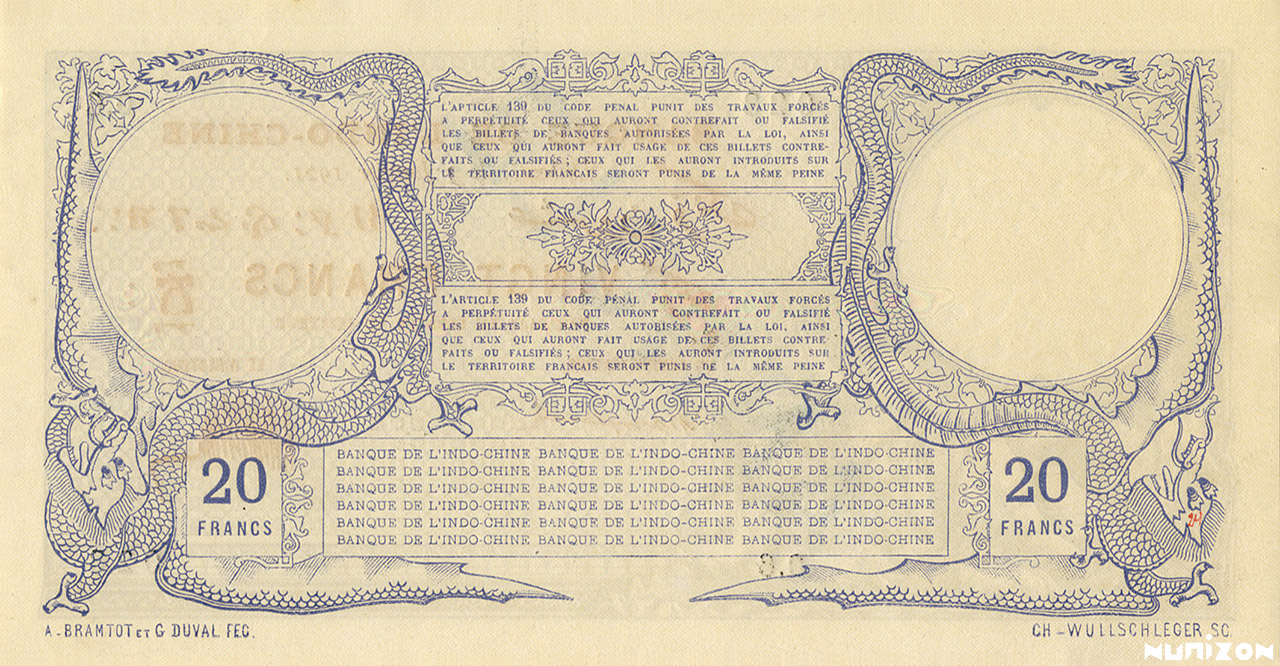 L'ARTICLE 139 DU CODE PENAL PUNIT DES TRAVAUX FORCÉS
A PERPÉTUITÉ CEUX QUI AURONT CONTREFAIT OU FALSIFIÉ
LES BILLETS DE BANQUES AUTORISÉES PAR LA LOI, AINSI
QUE CEUX QUI AURONT FAIT USAGE DE CES BILLETS CONTRE-
FAITS OU FALSIFIÉS ; CEUX QUI LES AURONT INTRODUITS SUR
LE TERRITOIRE FRANCAIS SERONT PUNIS DE LA MÊME PEINE
L'ARTICLE 139 DU CODE PÉNAL PUNIT DES TRAVAUX FORCÉS
A PERPÉTUITÉ CEUX QUI AURONT CONTREFAIT OU FALSIFIÉ
LES BILLETS DE BANQUES AUTORISÉES PAR LA LOI, AINSI
QUE CEUX QUI AURONT FAIT USAGE DE CES BILLETS CONTRE-
FAITS OU FALSIFIÉS ; CEUX QUI LES AURONT INTRODUITS SUR
LE TERRITOIRE FRANCAIS SERONT PUNIS DE LA MÊME PEINE
20
FRANCS
BANQUE DE L'INDO-CHINE BANQUE DE L'INDO-CHINE BANQUE DE L'INDO-CHINE
BANQUE DE L'INDO-CHINE BANQUE DE L'INDO-CHINE BANQUE DE L'INDO-CHINE
BANQUE DE L'INDO-CHINE BANQUE DE L'INDO-CHINE BANQUE DE L'INDO-CHINE
BANQUE DE L'INDO-CHINE BANQUE DE L'INDO-CHINE BANQUE DE L'INDO-CHINE
BANQUE DE L'INDO-CHINE BANQUE DE L'INDO-CHINE BANQUE DE L'INDO-CHINE
BANQUE DE L'INDO-CHINE BANQUE DE L'INDO-CHINE BANQUE DE L'INDO-CHINE
20
FRANCS
A - BRAMTOT ET G DUVAL FEC.
CH - WULLSCHLEGER SC.
NUMIZON